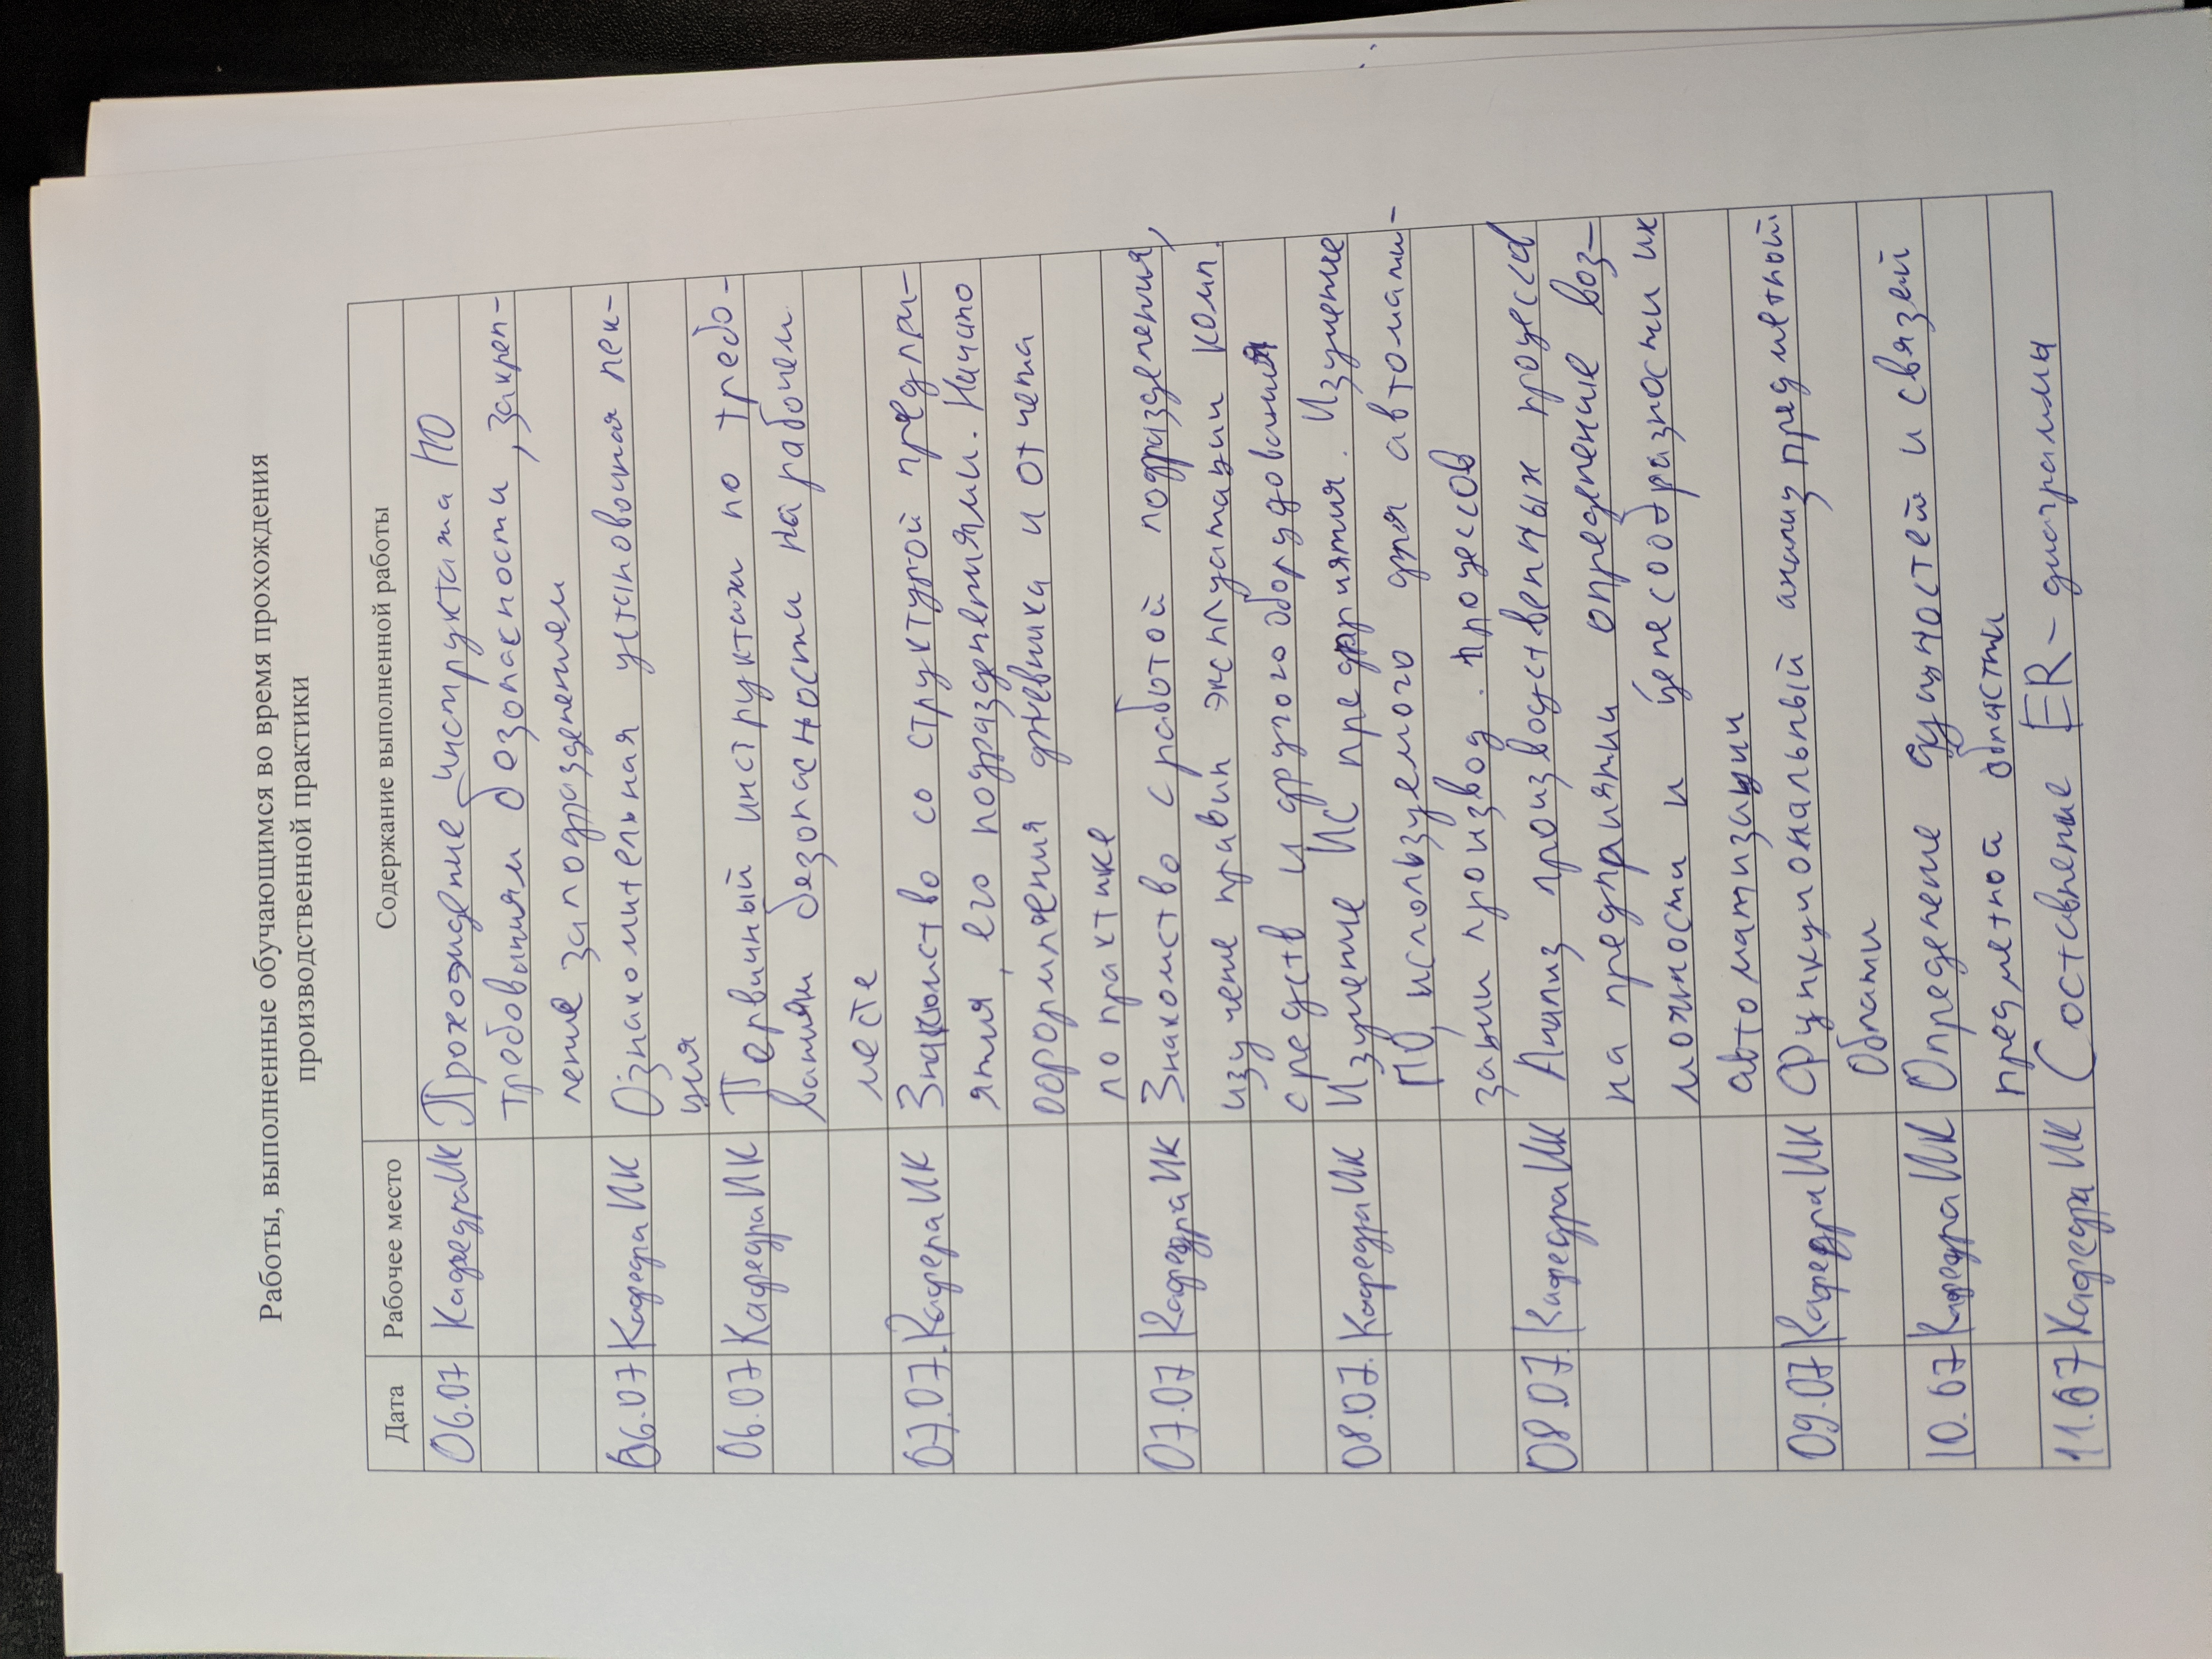 Работы, выполненные обучающимся во время прохождения
производственной практики
Дата Рабочее место Содержание выполненной работы
06.07 Кафедра ИК Прохождение инструктажа ПО
требованиям безопасности, закреп-
ление за подразделением
06.07 Кафедра ИК Ознакомительная установочная лек-
ция
06.07 Кафедра ИК Первичный инструктаж по требо-
ваниям безопасности на рабочем
месте
07.07. Кафера ИК Знакомство со структурой предпри-
ятия, его подразделениями. Начало
оформления дневника и отчета
по практике
07.07 Кафедра ИК Знакомство с работой подразделения,
изучение правил эксплуатации комп.
средств и другого оборудования
08.07. Кафедра ИК Изучение ИС предприятия. Изучение
ПО, используемого для автомати-
зации производ. процессов
08.07. Кафедра ИК Анализ производственных процессов
на предприятии определение воз-
можности и целесообразности их
автоматизации
09.07 Кафедра ИК Функциональный анализ предметной
Облати
10.07 Кафедра ИК Определение сущностей и связей
предметной области
11.07 Кафедра ИК Составление ER-диаграммы